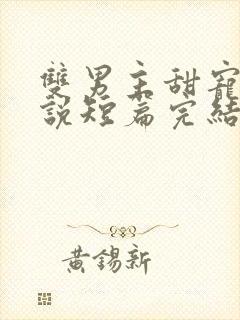 雙男主甜寵
說短篇完結
黃錫新